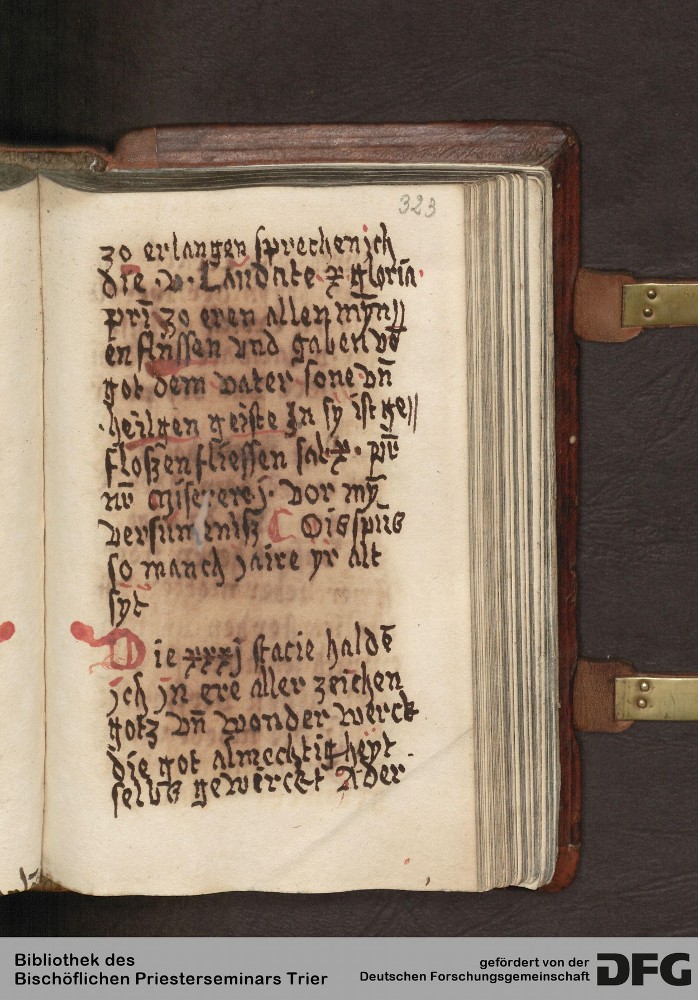 323
zo erlangen sprechen jch
die · v · Laudate x gloria
pr̄i zo eren allen myn̄
en flussen vnd gaben vō
got dem vater sone vn̄
heilgen geiste Jn sy ist ge
floszen fliessen sal x · pr̄
nr̄ Miserere j · vor my̅
versumnisz C Ois spūs
so manch jaire yr alt
syt
Die xxxj stacie haldē
jch jn ere aller zeichen
gotz vn̄ wonder werck
die got almechtigheyt
selbs gewerckt Ader
Bibliothek des
Bischöflichen Priesterseminars Trier
gefördert von der
Deutschen Forschungsgemeinschaft
DFG